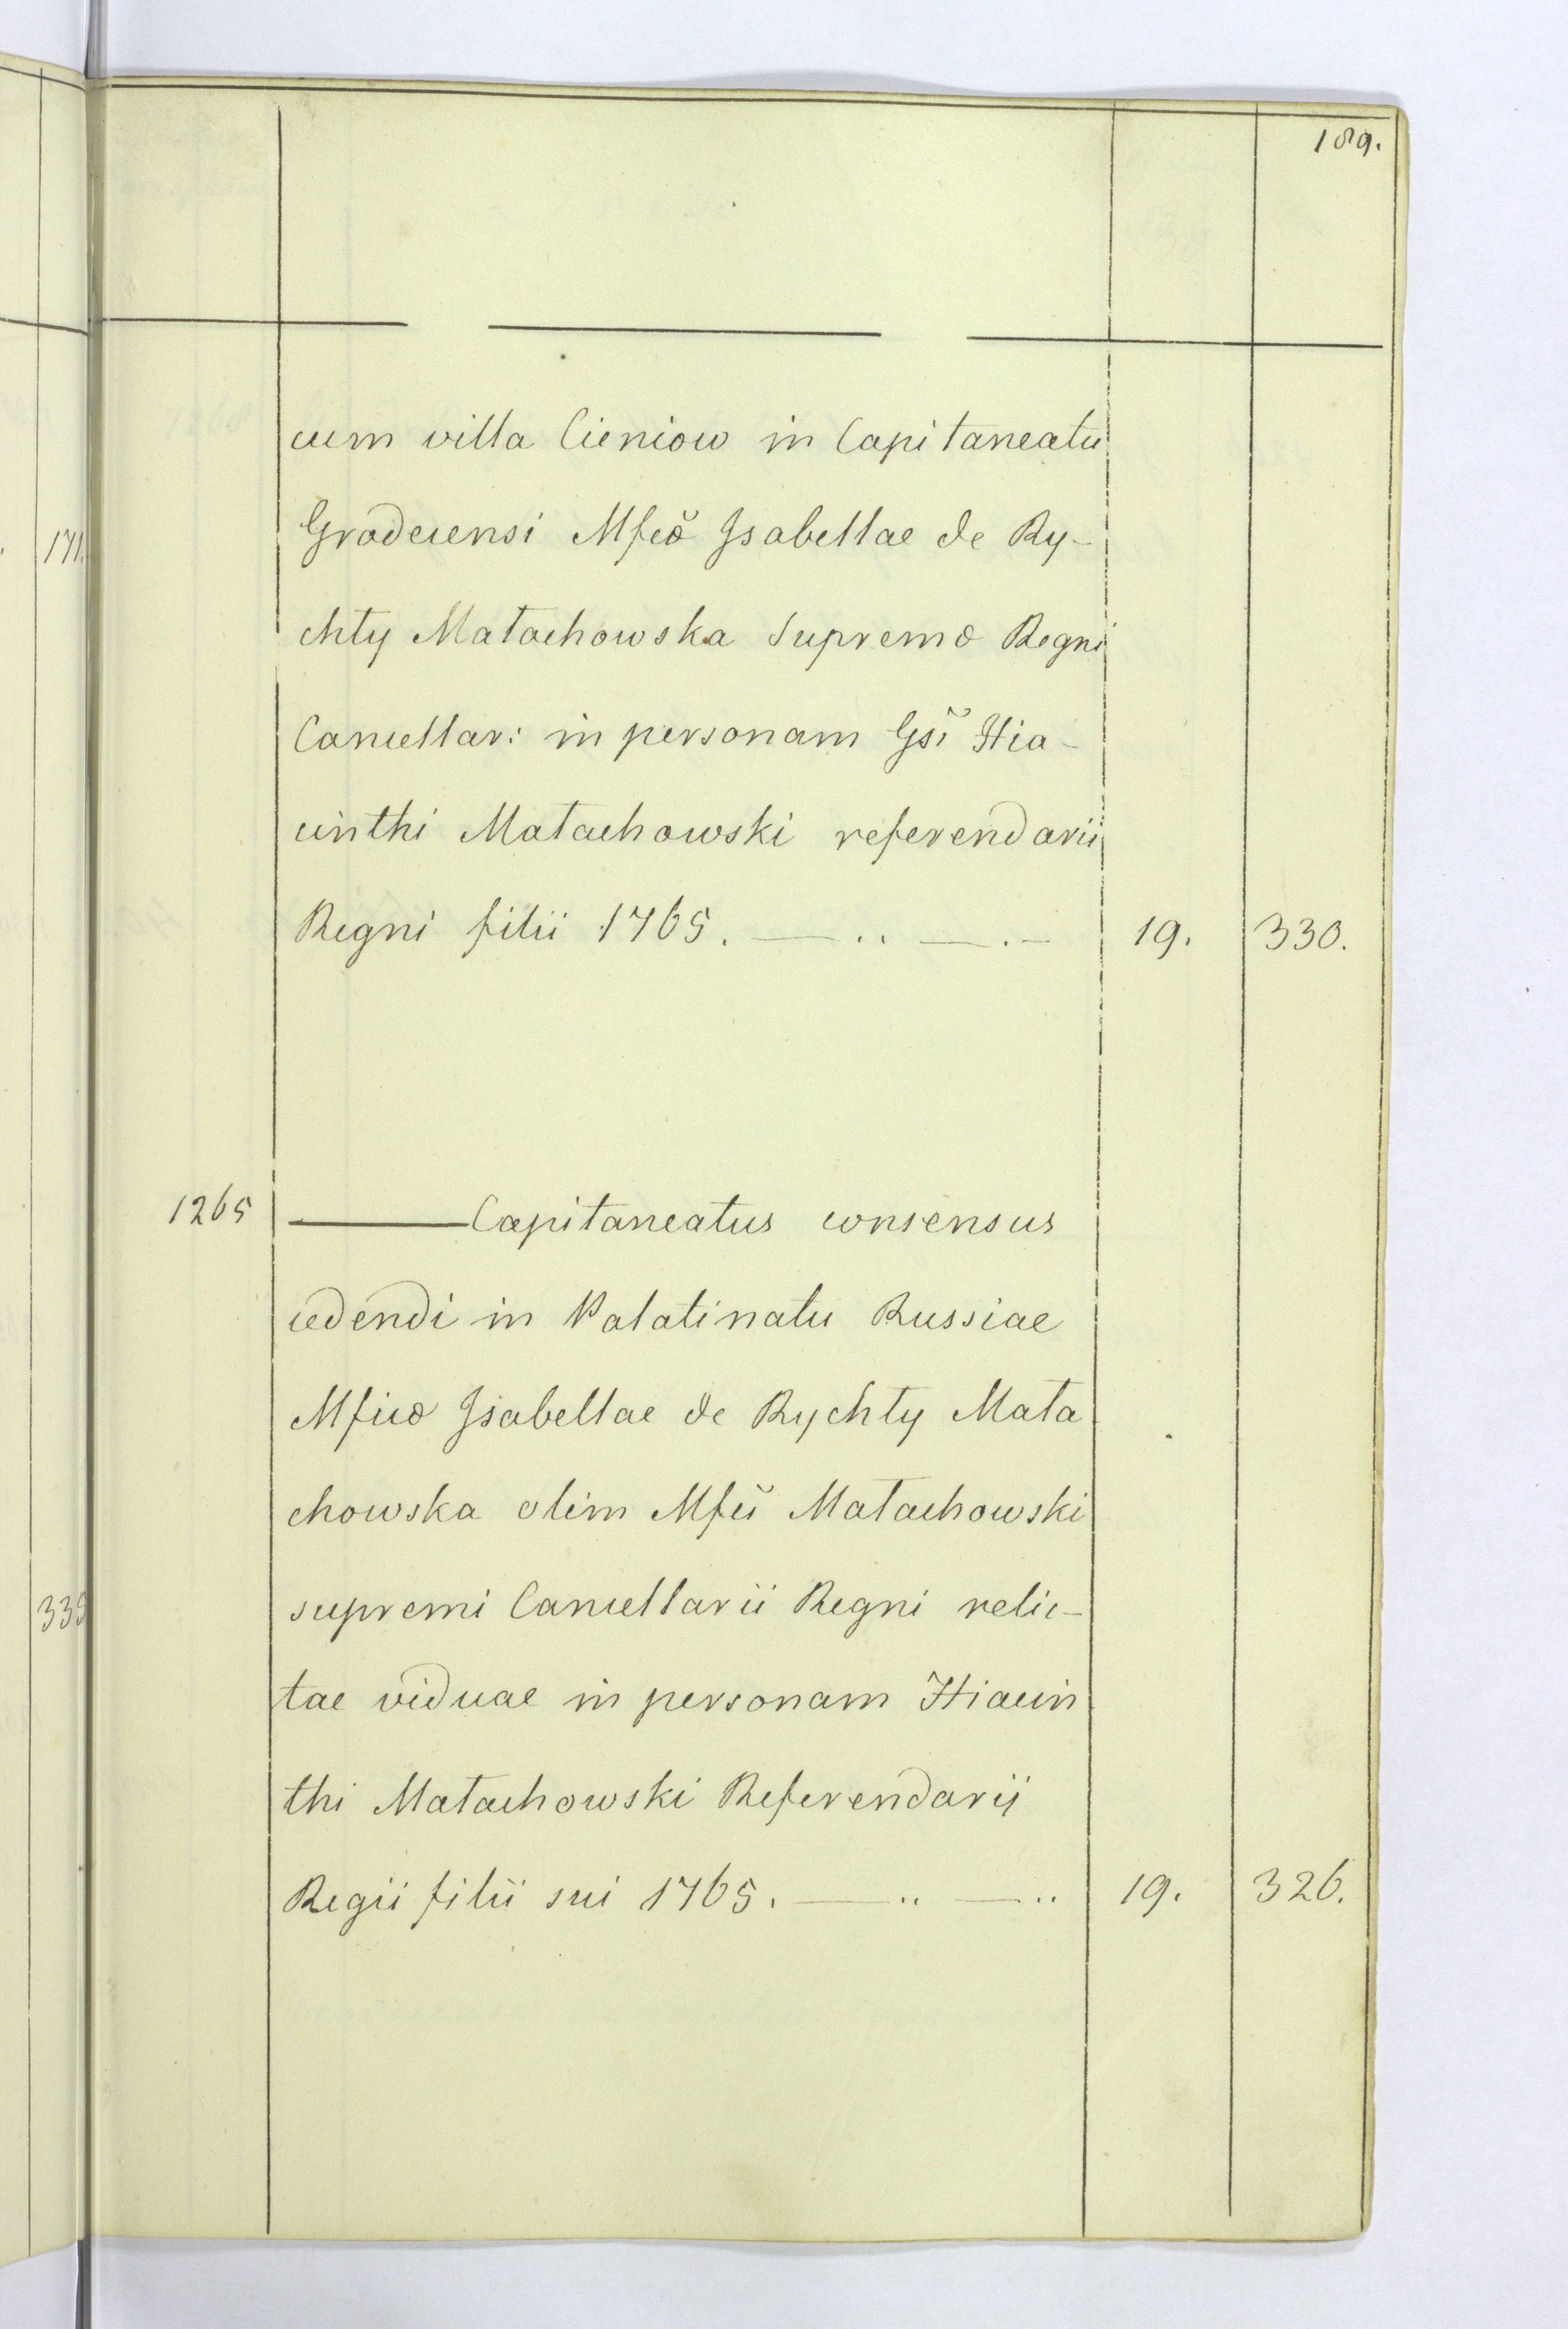 189.
cum villa Cieniow in Capitaneatu
Grodecensi Mfcõ Isabellae de Ry-
chty Matachowska Supremo Regni
Cancellar: in personam Gsĩ Hia-
cinthi Matachowski referendarii
Regni filii 1765. — .. — . — 19. 330.
1265 ——— Capitaneatus consensus
cedendi in Palatinatu Russiae
Mfico Isabellae de Rychty Mata
chowska olim Mfcĩ Matachowski
supremi Cancellarii Regni relic-
tae viduae in personam Hiacin
thi Matachowski Referendarij
Regii filii sui 1765. — .. — .. 19. 326.
171.
335